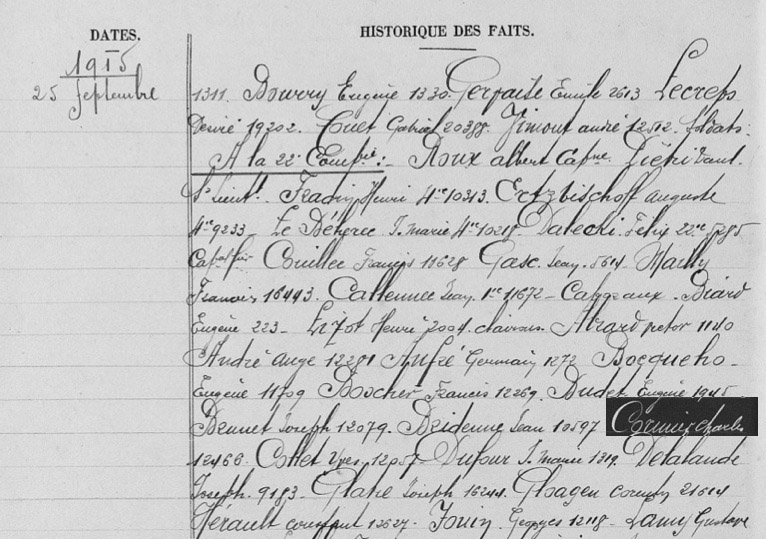 DATES.
HISTORIQUE DES FAITS.
1915
25 Septembre
1311. Bourry Eugène 1330. Gerfaite Emile 2613 Lecreps
Désiré 19202. Couet Gabriel 20388. Jimout andré 12512. Soldats.
A la 22e Compnie:- Roux albert Capne. Diéni Paul.
S/Lieutt. Henri 4ne 10313. Ertzbischoff auguste
4ne 9233- Le Déherec J. marie 4ne 10218 Dalecki. Félix 22ne 5285
Couillec Francis 11628 Gasc. Jean. 5614- Marlly
Francis 16443. Callennec Jean 1re 11672- Caporaux. Briard
Eugène 223- Lizot Henri 2004. clairons. Abrard 1140
André Ange 12281 Aufré Germain 1272 Bocqueho-
Eugène 11709 Boscher Francis 12269. Budet Eugène 1945
Brunet Joseph 12079. Bridenne Jean 10597 Cormier Charles
12466. Collet Yves. 12057- Dufour J. marie 1319. Delalande
Joseph. 9183- Glahe Joseph 16244. Gloagen 21614
Hérault constant 12627- Jouin Georges 12118- Lamy Gustave